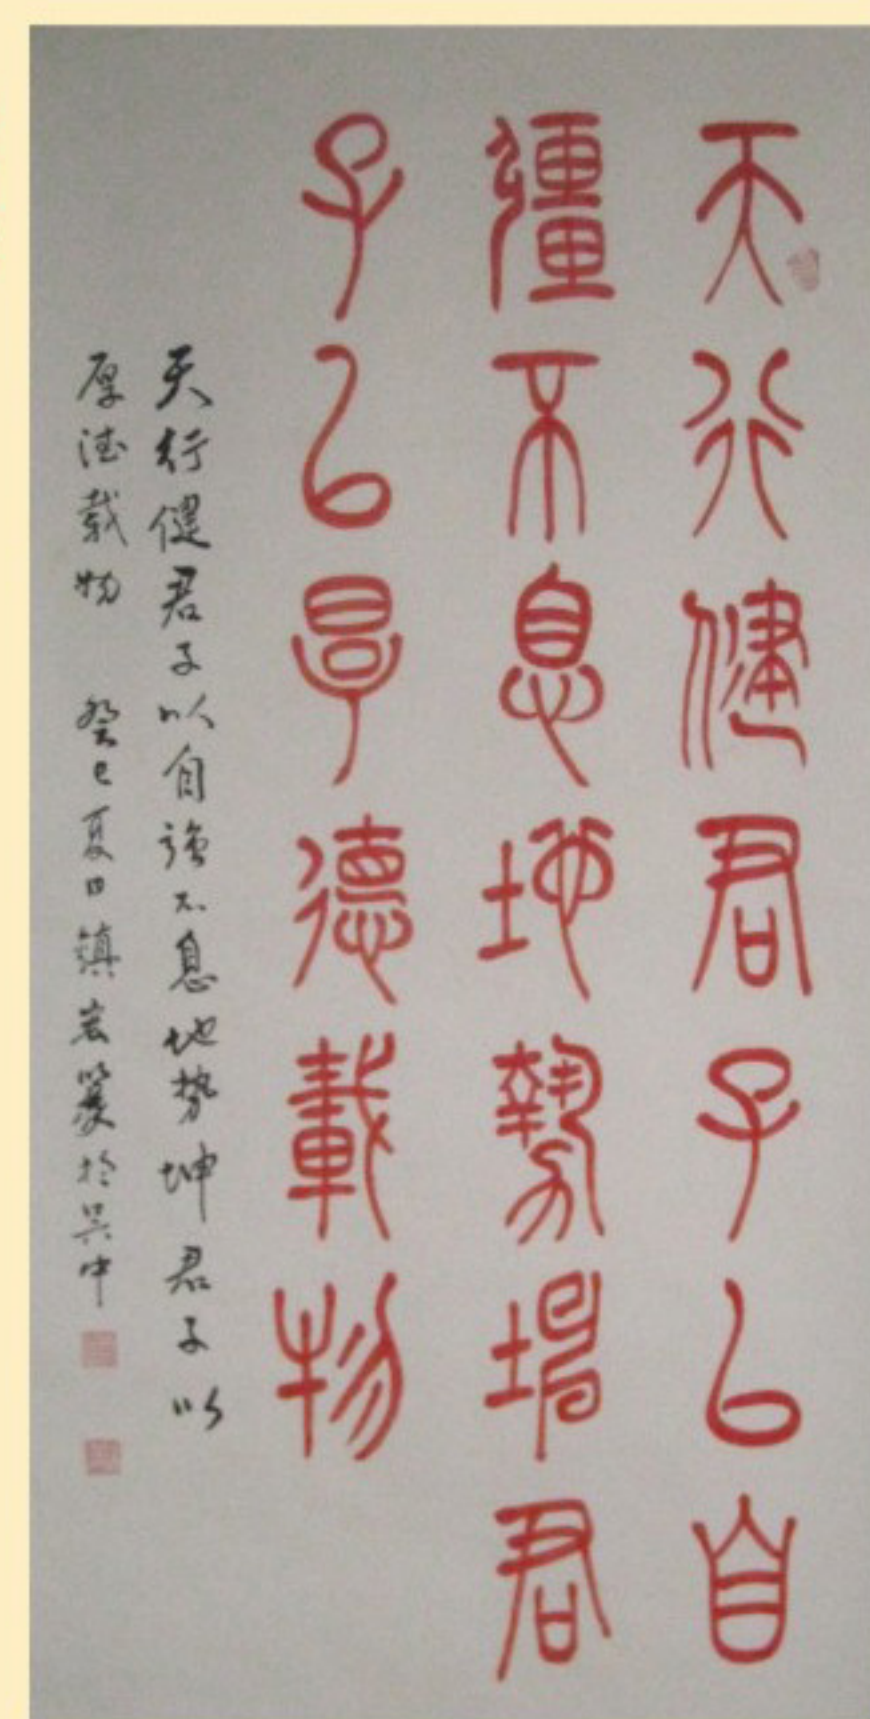 天行健君子以自
彊不息地勢坤君
子以厚德載物
天行健君子以自強不息地势坤君子以
厚德载物 癸巳夏日鎮宏篆於吴中